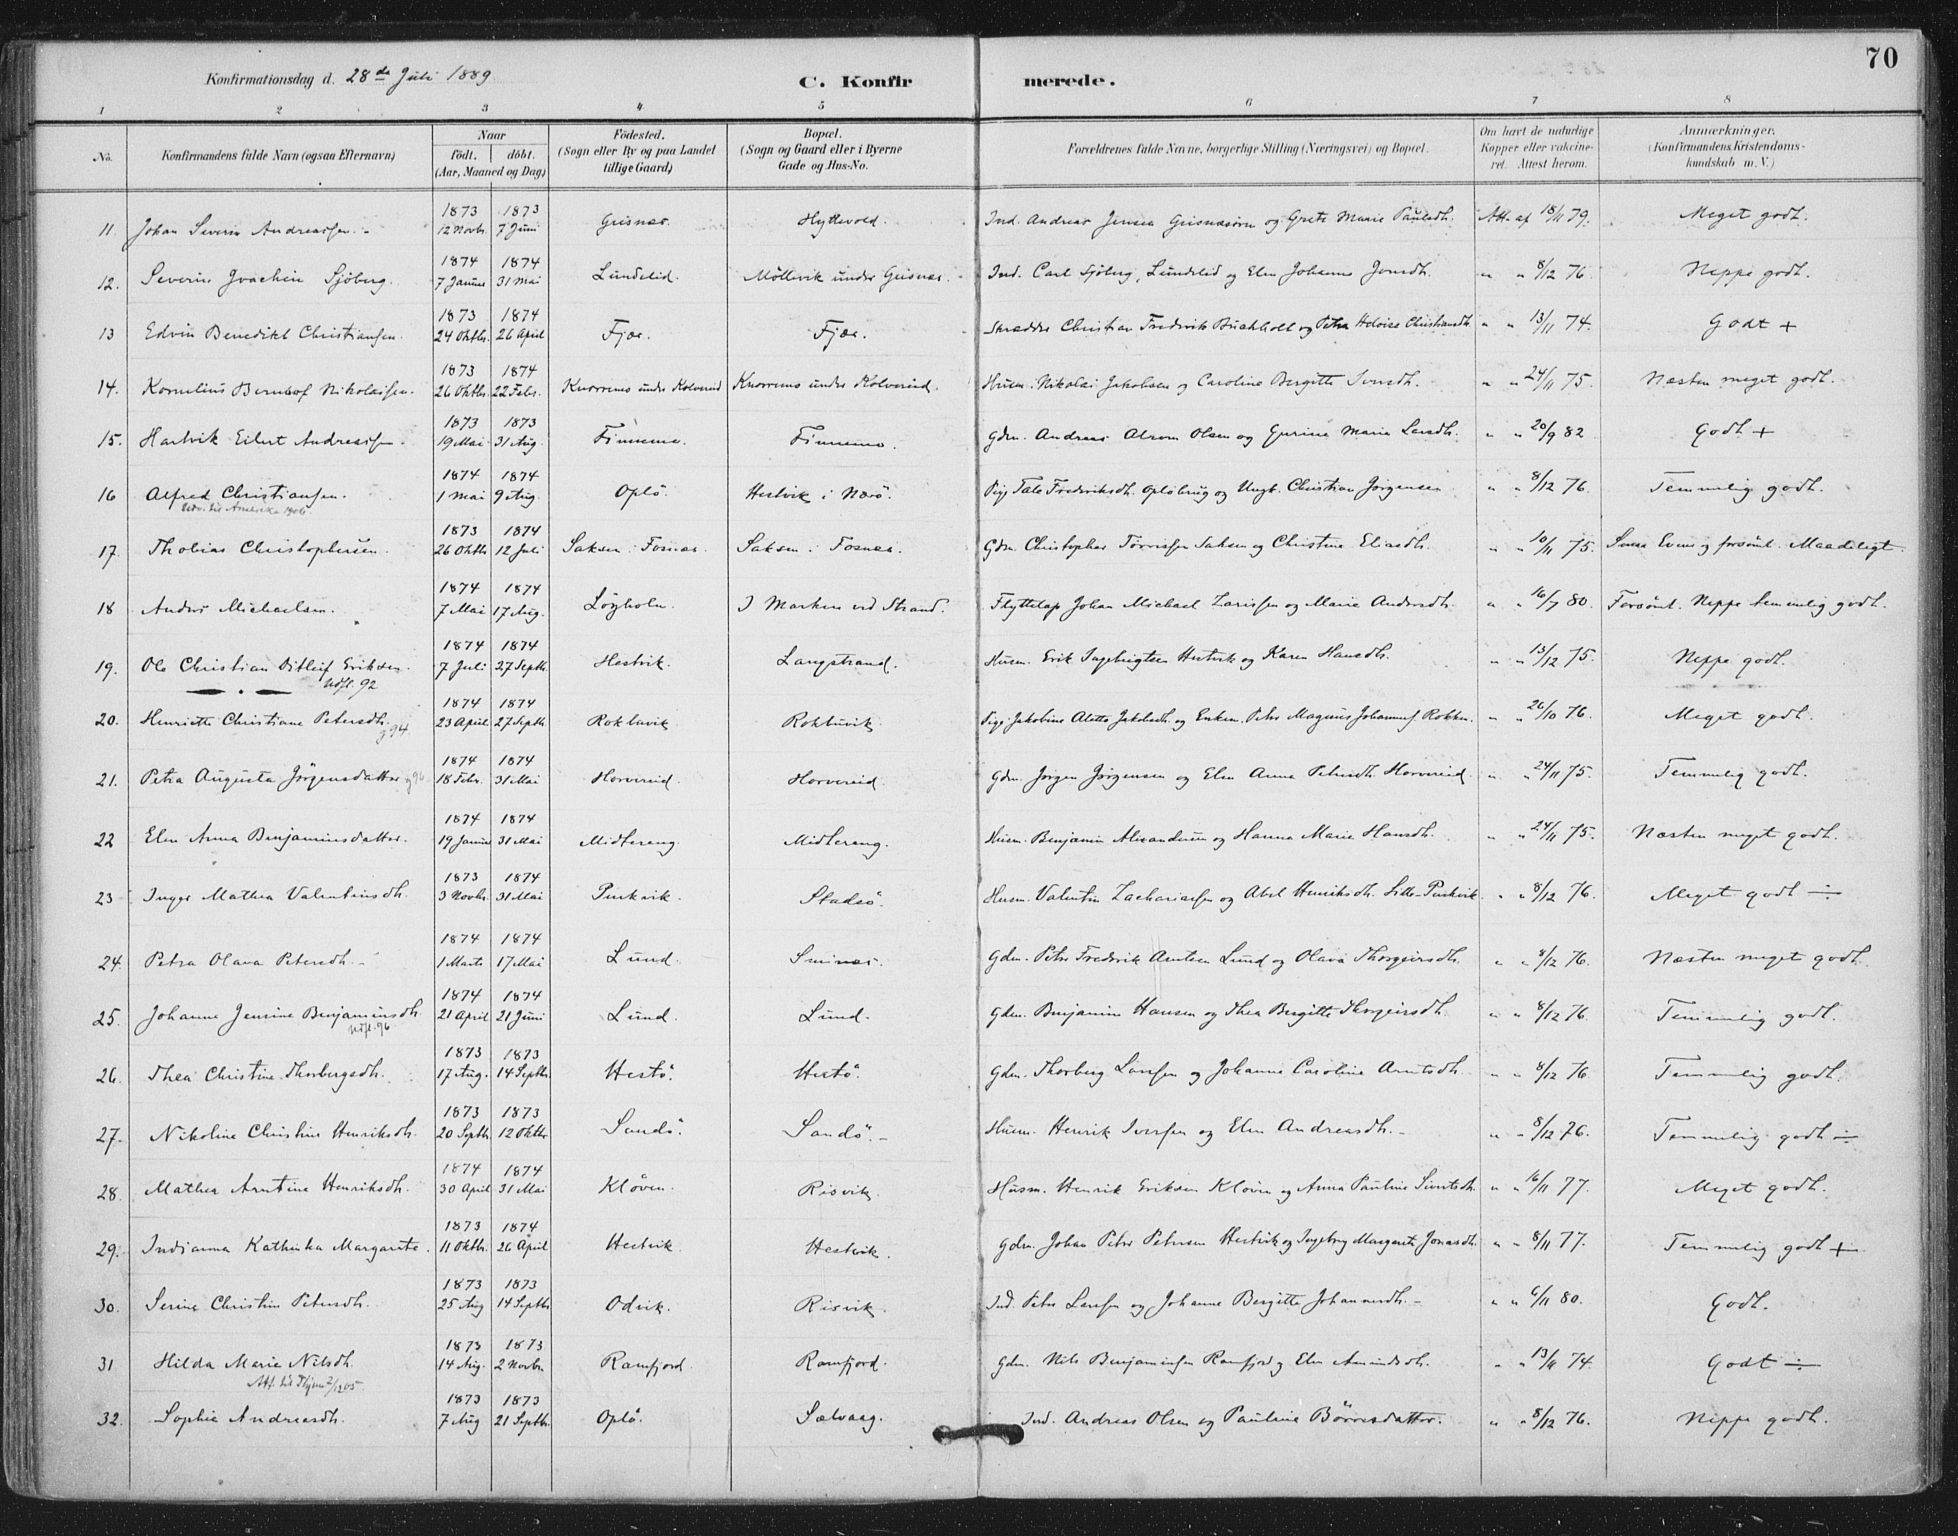 70
Konfirmationsdag d. 28de Juli 1889
C. Konfirmerede.
1 2 3 4 5 6 7 8
No. Konfirmandens fulde Navn (ogsaa Efternavn) Naar födt. döbt. (Aar, Maaned og Dag) Födested. (Sogn eller By og paa Landet tillige Gaard) Bopæl. (Sogn og Gaard eller i Byerne Gade og Hus-No. Forældrenes fulde Navne, borgerlige Stilling (Næringsvei) og Bopæl. Om havt de naturlige Kopper eller vakcineret. Attest herom. Anmærkninger. (Konfirmandens Kristendomskundskab m. V.)
11. Johan Severin Andreassen. 1873 12 Novbr. 1873 7 Juni Geisnæs. Hyllevold. Ind. Andreas Jensen Geisnæsörn og Grete Marie Paulsdh. Att. af 18/11 79. Meget godt.
12. Severin Joachim Sjöberg. 1874 7 Januar 1874 31 Mai Lundslid. Möllevik under Geisnæs. Ind. Carl Sjöberg, Lundslid og Elen Johanna Jonsdh. " " 8/12 76. Neppe godt.
13 Edvin Benedikt Christiansen. 1873 24 Oktbr. 1874 26 April Fjær. Fjær. Skrædder Christian Fredrik Buchholt og Petra Heloise Christiansdh. " " 13/11 74. Godt +
14. Kornelius Berntof Nikolaisen. 1873 26 Oktbr. 1874 22 Febr. Knarrems under Kolvereid Knarrems under Kolvereid. Husm. Nikolai Jakobsen og Caroline Bergitte Iversdh. " " 24/11 75. Næsten meget godt.
15. Hartvik Eilert Andreassen. 1873 19 Mai 1873 31 Aug. Finnemo. Finnemo. Gdm. Andreas Olsen og Gurine Marie Larsdh. " " 20/9 82 Godt +
16 Alfred Christiansen. 1874 1 Mai 1874 9 Aug. Oplö. Hestvik i Nærö. Pige Tale Fredriksdh. Oplöbrug og Ungk. Christian Jörgensen " " 8/12 76. Temmelig godt.
Udv. til Amerika 1906.
17. Thobias Christophersen. 1873 26 Oktbr 1874 12 Juli Saksen i Fosnæs. Saksen i Fosnæs. Gdm. Christopher Törrissen Saksen og Christine Eliasdh. " " 10/11 75. Svage Evner og forsömt. Maadeligt.
18 Anders Michaelsen. 1874 7 Mai 1874 17 Aug. Löyholm. I Marken ved Strand. Flyttelap Johan Michael Larissen og Marie Andersdh. " " 16/7 80. Forsömt. Neppe temmelig godt.
19. Ole Christian Ditleif Eriksen. 1874 7 Juli 1874 27 Septbr. Hestvik. Langstrand. Husm. Erik Ingebrigtsen Hestvik og Karen Hansdh. " " 13/12 75. Neppe godt.
Udfl. 92
20. Henriette Christiane Petersdh. g 94 1874 23 April 1874 27 Septbr Roktavik Roktavik Pige Jakobine Aletta Jakobsdh. og Enkem. Peter Magnus Johannes Rokken. " " 26/10 76. Meget godt.
21. Petra Augusta Jörgensdatter g 96 1874 18 Febr. 1874 31 Mai Horvereid. Horvereid. Gdm. Jörgen Jörgensen og Elen Anna Petersdh. Horvereid. " " 24/11 75. Temmelig godt.
22 Elen Anna Benjaminsdatter. 1874 19 Januar 1874 31 Mai Midtereng. Midtereng. Husm. Benjamin Alexandersen og Hanna Marie Hansdh. " " 24/11 75. Næsten meget godt.
23 Inger Mathea Valentinsdh. 1873 3 Novbr. 1874 31 Mai Purkvik. Stadsö. Husm. Valentin Zachariassen og Abel Henriksdh. Lille-Purkvik. " " 8/12 76. Meget godt ÷
24. Petra Olava Petersdh. 1874 1 Marts 1874 17 Mai Lund. Smines. Gdm. Peter Fredrik Arntsen Lund og Olava Thorgeirsdh. " " 8/12 76. Næsten meget godt.
25. Johanne Jensine Benjaminsdh. 1874 21 April 1874 21 Juni Lund. Lund. Gdm. Benjamin Hansen og Thea Bergitte Thorgeirsdh. " " 8/12 76 Temmelig godt.
Udfl. 96
26. Thea Christine Thorbergsdh. 1873 17 Aug. 1873 14 Septbr. Hestö. Hestö. Gdm. Thorberg Larssen og Johanna Caroline Arntsdh. " " 8/12 76. Temmelig godt.
27. Nikoline Christine Henriksdh. 1873 20 Septbr. 1873 12 Oktbr Sandö. Sandö. Husm. Henrik Iversen og Elen Andreasdh. " " 8/12 76. Temmelig godt ÷
28. Mathea Arntine Henriksdh. 1874 30 April 1874 31 Mai Klöven. Risvik. Husm. Henrik Eriksen Klöven og Anna Pauline Sivertsdh. " " 16/11 77. Meget godt.
29. Indianna Kathinka Margarete. 1873 11 Oktbr. 1874 26 April Hestvik. Hestvik. Gdm. Johan Peter Petersen Hestvik og Ingeborg Margarete Jonasdh. " " 8/11 77. Temmelig godt +
30. Serine Christine Petersdh. 1873 25 Aug 1873 14 Septbr Odvik. Risvik. Ind. Peter Larssen og Johanne Bergitte Johannesdh. " " 6/11 80. Godt.
31 Hilda Marie Nilsdh. 1873 14 Aug. 1873 2 Novbr. Ramfjord. Ramfjord. Gdm. Nils Benjaminsen Ramfjord og Elen Amundsdh. " " 13/11 74. Godt ÷
Att. til 2/12 05
32. Sophie Andreasdh. 1873 7 Aug 1873 21 Septbr. Oplö. Sælvaag. Ind. Andreas Olsen og Pauline Börresdatter. " " 8/12 76. Neppe godt.